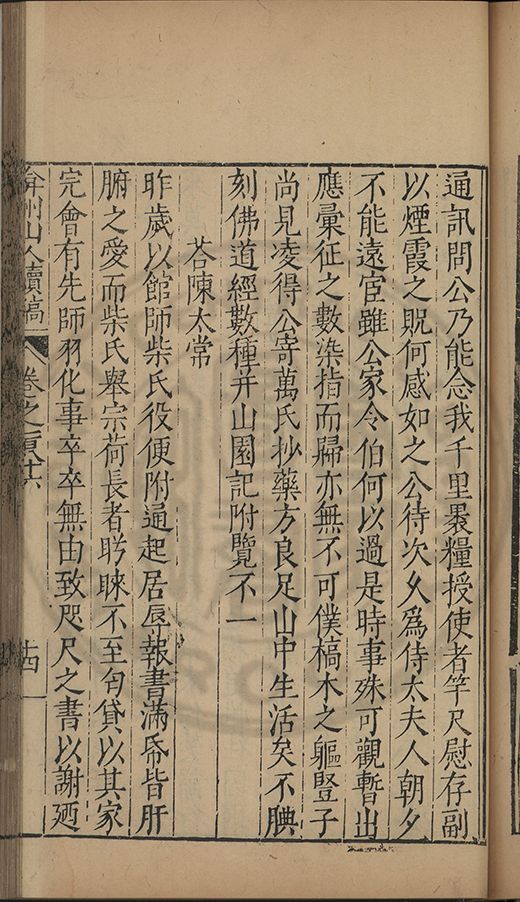 通訊問公乃能念我千里褁糧授使者竿尺慰存副
以煙霞之貺何感如之公待次乆爲侍太夫人朝夕
不能遠宦雖公家令伯何以過是時事殊可觀暫出
應彚征之數染指而歸亦無不可僕槁木之軀豎子
尚見凌得公寄萬氏抄藥方良足山中生活矣不腆
刻佛道經數種并山園記附覽不一
荅陳太常
昨歲以館師柴氏役便附通起居辰報書滿帋皆肝
腑之愛而柴氏舉宗荷長者眄睞不至匄貸以其家
完會有先師羽化事卒卒無由致咫尺之書以謝廼
弇州山人續稿 卷之百廿六 十四